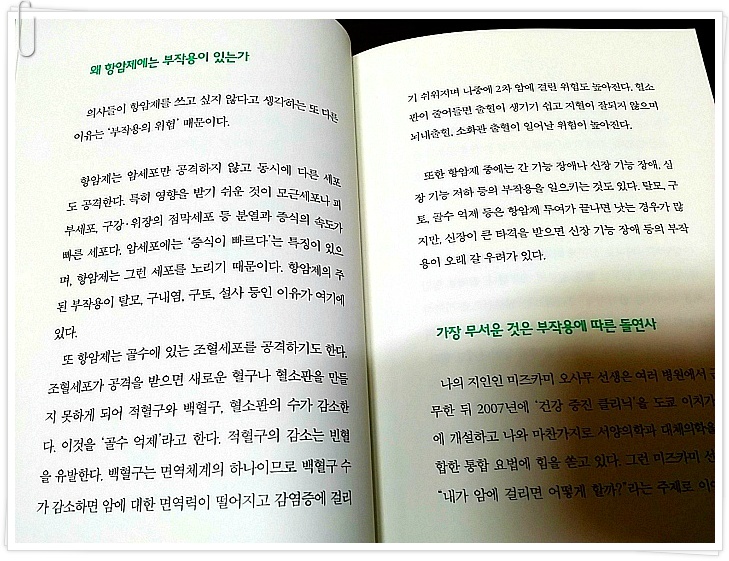 왜 항암제에는 부작용이 있는가
의사들이 항암제를 쓰고 싶지 않다고 생각하는 또 다른
이유는 '부작용의 위험' 때문이다.
항암제는 암세포만 공격하지 않고 동시에 다른 세포
도 공격한다. 특히 영향을 받기 쉬운 것이 모근세포나 피
부세포, 구강·위장의 점막세포 등 분열과 증식의 속도가
빠른 세포다. 암세포에는 '증식이 빠르다'는 특징이 있으
며, 항암제는 그런 세포를 노리기 때문이다. 항암제의 주
된 부작용이 탈모, 구내염, 구토, 설사 등인 이유가 여기에
있다.
또 항암제는 골수에 있는 조혈세포를 공격하기도 한다.
조혈세포가 공격을 받으면 새로운 혈구나 혈소판을 만들
지 못하게 되어 적혈구와 백혈구, 혈소판의 수가 감소한
다. 이것을 '골수 억제'라고 한다. 적혈구의 감소는 빈혈
을 유발한다. 백혈구는 면역체계의 하나이므로 백혈구 수
가 감소하면 암에 대한 면역력이 떨어지고 감염증에 걸리
기 쉬워지며 나중에 2차 암에 걸린 위험도 높아진다. 혈소
판이 줄어들면 출혈이 생기기 쉽고 지혈이 잘되지 않으며
뇌내출혈, 소화관 출혈이 일어날 위험이 높아진다.
또한 항암제 중에는 간 기능 장애나 신장 기능 장애, 심
장 기능 저하 등의 부작용을 일으키는 것도 있다. 탈모, 구
토, 골수 억제 등은 항암제 투여가 끝나면 낫는 경우가 많
지만, 신장이 큰 타격을 받으면 신장 기능 장애 등의 부작
용이 오래 갈 우려가 있다.
가장 무서운 것은 부작용에 따른 돌연사
나의 지인인 미즈카미 오사무 선생은 여러 병원에서 근
무한 뒤 2007년에 '건강 증진 클리닉'을 도쿄 이치가
에 개설하고 나와 마찬가지로 서양의학과 대체의학을
합한 통합 요법에 힘을 쏟고 있다. 그런 미즈카미 선
"내가 암에 걸리면 어떻게 할까?"라는 주제로 이야